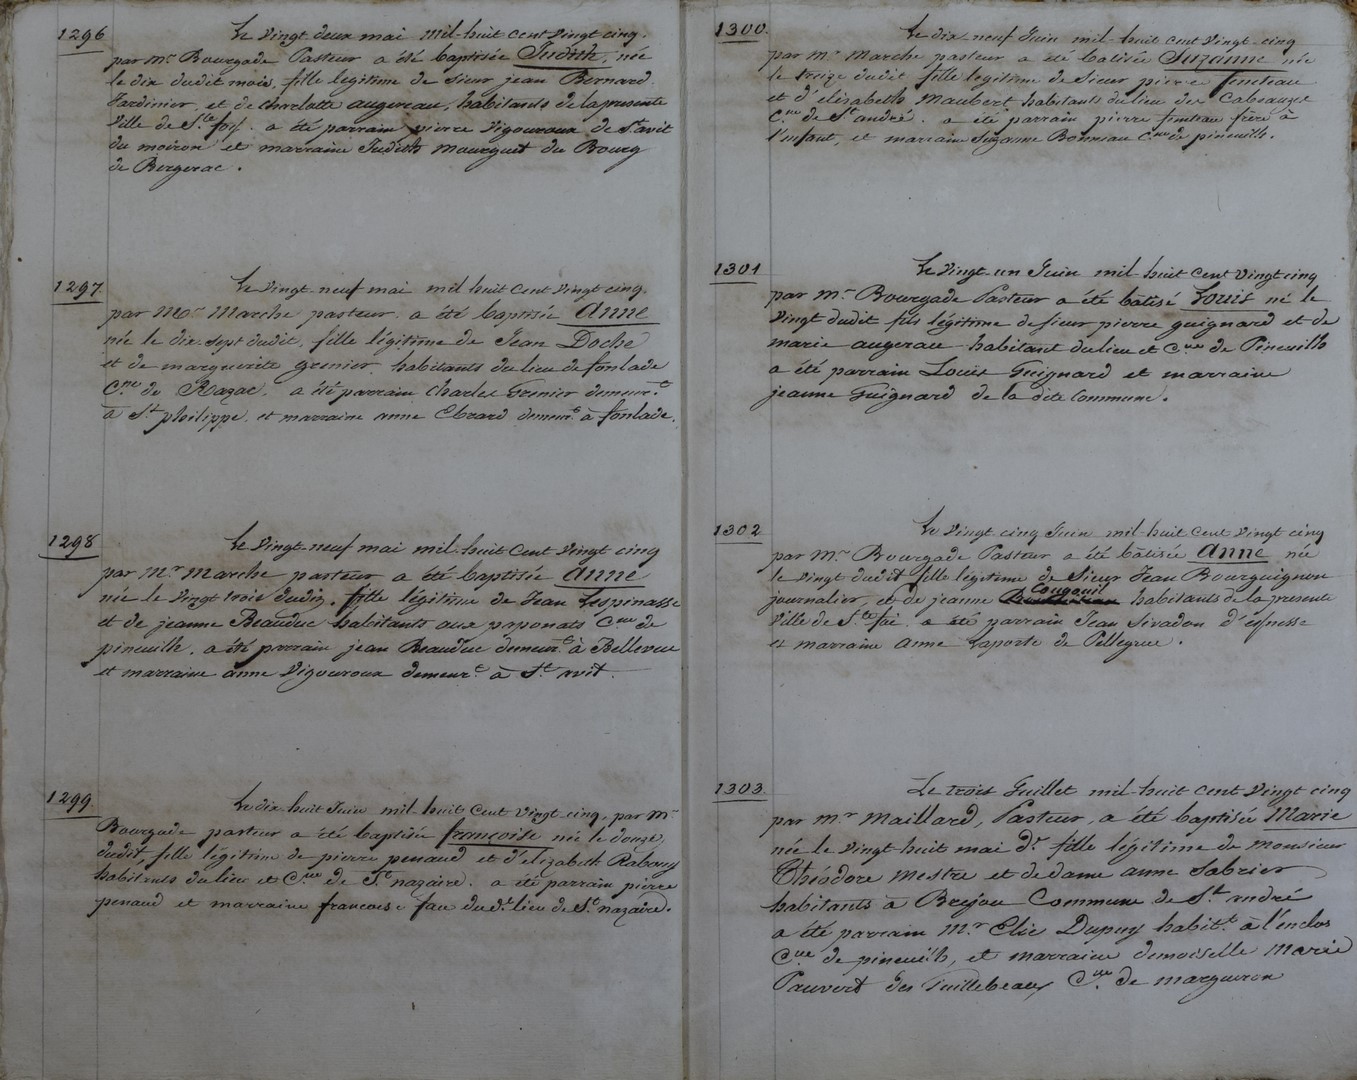 1296
Le vingt deux mai mil-huit cent vingt cinq.
par mr Bourgade Pasteur a été baptisée Judith, née
le dix dudit mois, fille légitime de sieur jean Bernard
Jardinier, et de charlotte augereau, habitants de la presente
ville de Ste foy. a été parrain pierre Vigouroux de St avit
du moiron et marraine Judith Mourguet du Bourg
de Bergerac.
1297
Le vingt-neuf mai mil huit cent vingt cinq
par Mor Marche pasteur. a été baptisée Anne
née le dix-sept dudit, fille légitime de Jean Doche
et de marguerite grenier, habitants du lieu de fonlade
Cne de Razac. a été parrain Charles Grenier demeurt
à St philippe, et marraine anne Ebrard demeurt à fonlade.
1298
Le vingt-neuf mai mil-huit cent vingt cinq
par Mr Marche pasteur a été baptisée Anne
née le vingt trois dudit. fille légitime de Jean Lespinasse
et de jeanne Beauduc habitants aux paponats Cne de
pineuille. a été parrain jean Beauduc demeurt à Bellevue
et marraine anne Vigouroux demeurt à St avit.
1299
Le dix huit Juin mil-huit cent vingt cinq, par mr
Bourgade pasteur a été baptisée françoise née le douze
dudit, fille légitime de pierre penaud et d'elizabeth Rabouy
habitants du lieu et Cne de St nazaire. a été parrain pierre
penaud et marraine francoise fau du dt lieu de St nazaire.
1300
Le dix neuf Juin mil-huit cent vingt-cinq
par mr Marche pasteur a été batisée Suzanne née
le treize dudit fille legitime de Sieur pierre finiteau
et d'elizabeth Maubert habitants du lieu de Cabeauze
Cne de St andré. a été parrain pierre finiteau frère à
l'enfant, et marraine Suzanne Bonneau Cne de pineuilh.
1301
Le Vingt-un Juin mil-huit cent vingt cinq
par mr Bourgade Pasteur a été batisé Louis né le
vingt dudit fils légitime de sieur pierre guignard et de
marie augerau habitant du lieu et Cne de Pineuilh
a été parrain Louis Guignard et marraine
jeanne Guignard de la dite Commune.
1302
Le vingt cinq Juin mil-huit cent vingt cinq
par mr Bourgade Pasteur a été bâtisée Anne née
le vingt dudit fille légitime de Sieur Jean Bourguignon
journalier, et de jeanne Cougouil habitants de la presente
ville de Ste foi. a été parrain Jean Sivadon d'eynesse
et marraine anne Laporte de Pellegrue.
1303
Le trois Juillet mil-huit cent vingt cinq
par mr Maillard, Pasteur, a été baptisée Marie
née le vingt huit mai dr fille légitime de monsieur
Théodore Mestre et de dame anne Sabrier
habitants à Bréjou Commune de St andré
a été parrain Mr Elie Dupuy habitt à l'enclos
Cne de pineuilh, et marraine demoiselle Marie
Pauvert des Guillebeaux Cne de margueron